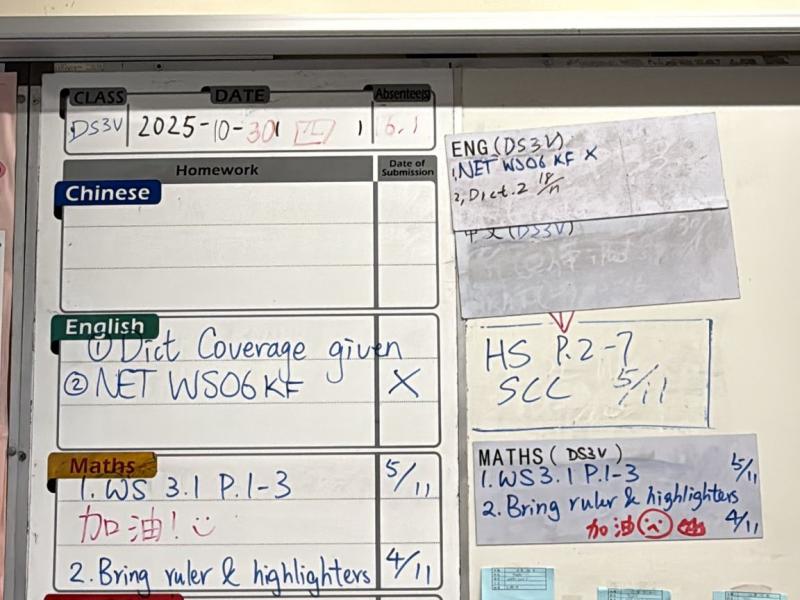 CLASS DATE Absentee(s)
DS3V 2025-10-30 (四) 6.1
Homework Date of Submission
Chinese
English
① Dict Coverage given
② NET WS06 KF X
Maths
1. WS 3.1 P.1-3 5/11
加油!
2. Bring ruler & highlighters 4/11
ENG (DS3V)
1. NET WS06 KF X
2. Dict. 2 18/11
中文 (DS3V)
HS P.2-7
SCC 5/11
MATHS (DS3V)
1. WS 3.1 P.1-3 5/11
2. Bring ruler & highlighters 4/11
加油